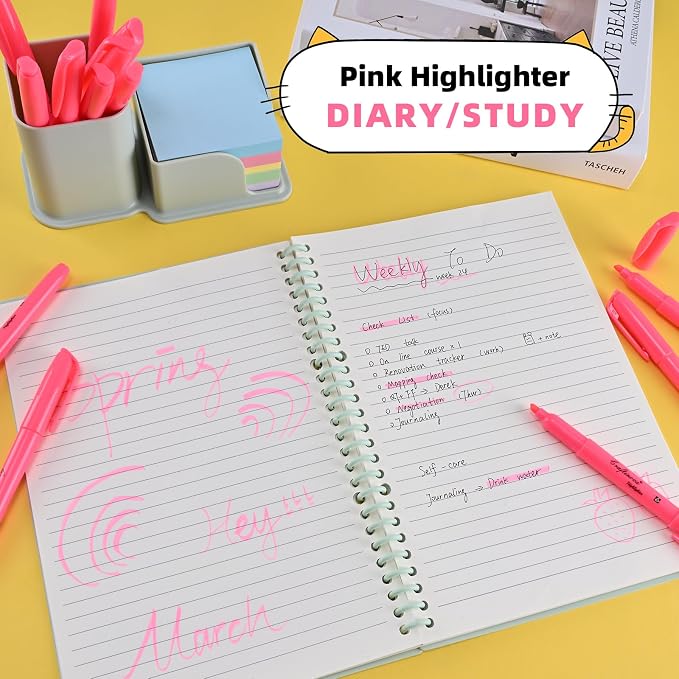 Pink Highlighter
DIARY/STUDY
LIVE BEAU
ATHENA CALDER
TASCHEN
Weekly To Do
week 24
Check List (focus)
TAD task
On line course x 1
Renovation tracker (work)
+ note
Mapping check
→ Derek
Negotiation (Thur)
Journaling
Self-care
Journaling → Drink water
Spring
Hey!!!
March
Highlighter